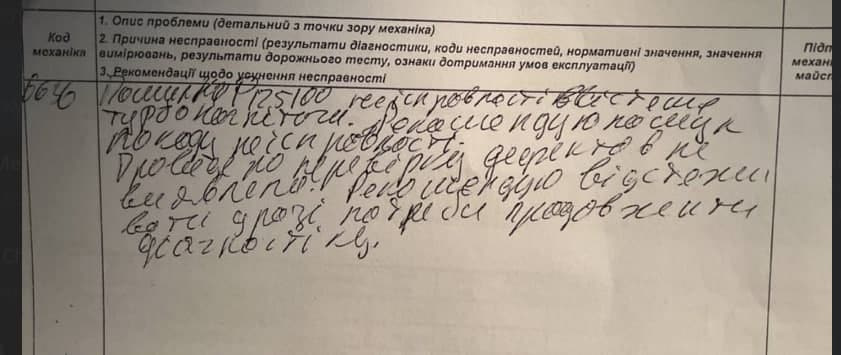 Код механіка
1. Опис проблеми (детальний з точки зору механіка)
2. Причина несправності (результати діагностики, коди несправностей, нормативні значення, значення
вимірювань, результати дорожнього тесту, ознаки дотримання умов експлуатації)
3. Рекомендації щодо усунення несправності
Підп
механі
майст
Помилка P125100 несісправності в системе
турбонагнітача. Рекомендую пошук
по коду неісправності.
Проведено перевірку дефектов не
виявлено. Рекомендую відстежи
вати у разі потреби продовжити
діагностіку.